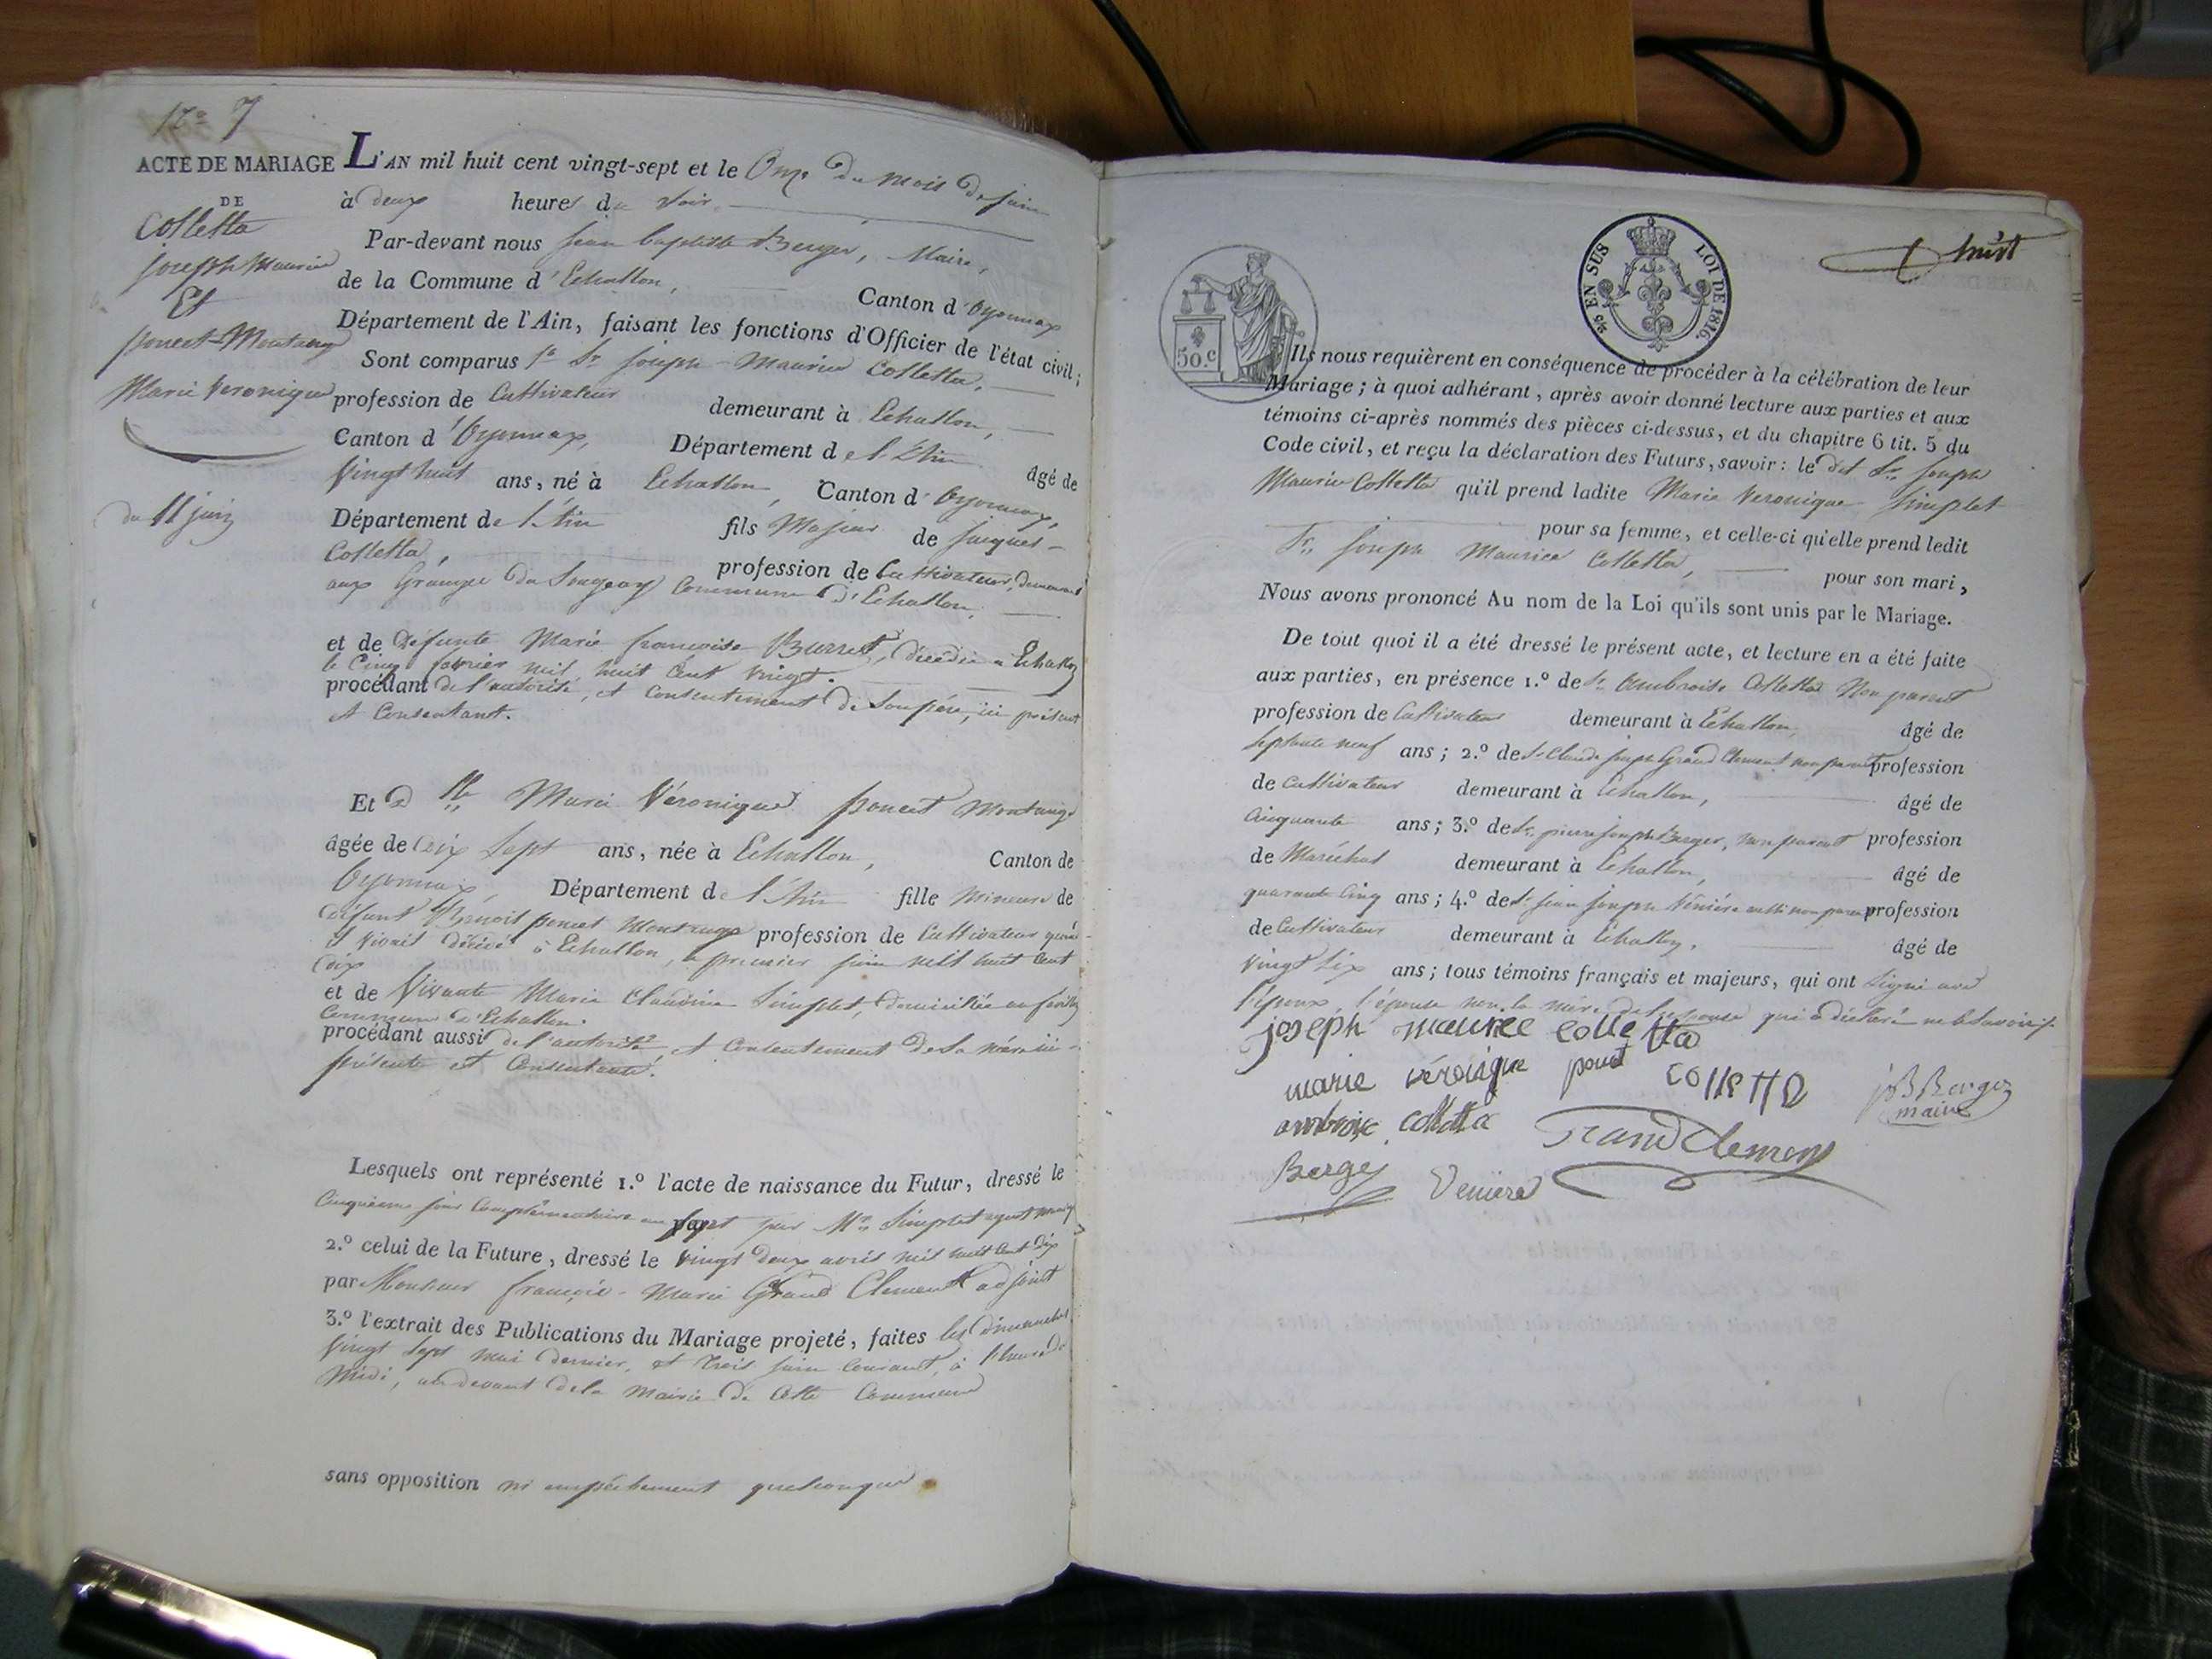 N.o 7
ACTE DE MARIAGE
DE
Colletta
joseph Maurice
Et
poncet-Montange
Marie Veronique
du 11 juin
L'AN mil huit cent vingt-sept et le Onze du mois de juin
à deux heures du soir
Par-devant nous jean baptiste Berger, Maire,
de la Commune d'Echallon, Canton d'Oyonnax
Département de l'Ain, faisant les fonctions d'Officier de l'état civil;
Sont comparus 1.o Sr. joseph-Maurice Colletta,
profession de Cultivateur demeurant à Echallon,
Canton d'Oyonnax, Département de l'Ain âgé de
Vingt huit ans, né à Echallon, Canton d'Oyonnax,
Département de l'Ain fils Majeur de jacques-
Colletta, profession de Cultivateur, demeurant
aux Granges du commune d'Echallon,
et de défunte Marie françoise Burret, décédée à Echallon
le Cinq février mil huit Cent vingt.
procédant de l'autorité, et consentement de Son père, ici présent
et Consentant.
Et D lle Marie Véronique poncet Montange
âgée de dix Sept ans, née à Echallon, Canton de
Oyonnax, Département de l'Ain fille mineure de
défunt Benoit poncet Montange profession de Cultivateur quand
il vivait décédé à Echallon, le premier juin mil huit Cent
dix
et de Vivante Marie Claudine Simplet, domiciliée au
Commune d'Echallon.
procédant aussi de l'autorité, et consentement de Sa mère ici
présente et Consentante.
Lesquels ont représenté 1.o l'acte de naissance du Futur, dressé le
Cinquième jour Complémentaire an sept par Mr. Simplet agent
2.o celui de la Future, dressé le vingt deux avril mil huit Cent dix
par Monsieur françois-Marie Grand Clement adjoint
3.o l'extrait des Publications du Mariage projeté, faites les dimanches
Vingt Sept mai dernier, et trois juin Courant, à l'heure de
Midi, au devant de la Mairie de Cette Commune
sans opposition ni empêchement quelconque
huit
5/10 EN SUS LOI DE 1816.
50.c
Ils nous requièrent en conséquence de procéder à la célébration de leur
Mariage; à quoi adhérant, après avoir donné lecture aux parties et aux
témoins ci-après nommés des pièces ci-dessus, et du chapitre 6 tit. 5 du
Code civil, et reçu la déclaration des Futurs, savoir: le dit Sr. joseph
Maurice Colletta qu'il prend ladite Marie Veronique Simplet
pour sa femme, et celle-ci qu'elle prend ledit
Sr. joseph Maurice Colletta, pour son mari,
Nous avons prononcé Au nom de la Loi qu'ils sont unis par le Mariage.
De tout quoi il a été dressé le présent acte, et lecture en a été faite
aux parties, en présence 1.o de Sr. Ambroise Colletta Non parent
profession de Cultivateur demeurant à Echallon, âgé de
Septante neuf ans; 2.o de Sr. Claude joseph Grand Clement non parent profession
de Cultivateur demeurant à Echallon, âgé de
Cinquante ans; 3.o de Sr. pierre joseph Berger, non parent profession
de Maréchal demeurant à Echallon, âgé de
quarante Cinq ans; 4.o de Sr. jean joseph Vénière aussi non parent profession
de Cultivateur demeurant à Echallon, âgé de
vingt Six ans; tous témoins français et majeurs, qui ont signé avec
l'époux, l'épouse non la mère de l'épouse qui a déclaré ne le Savoir.
joseph maurice colletta
marie véronique poncet colletta
jB Berger
maire
ambroise colletta GrandClement
Berger Veniere